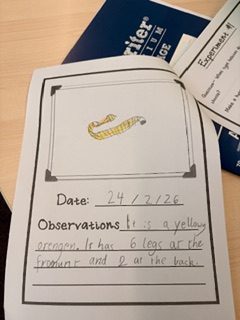 writer
IUM
AGE
Experiment #1
Date: 24/2/26
Observations It is a yellowy
orengen. It has 6 legs at the
and 2 at the back.